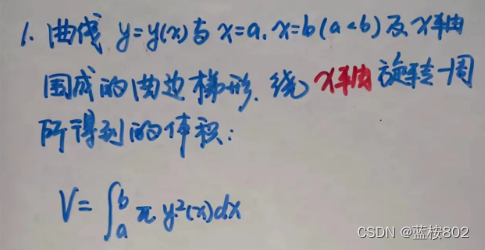 1. 曲线 y=y(x)与 x=a, x=b (a<b) 及 x轴
围成的曲边梯形, 绕 x轴 旋转一周
所得到的体积:
V = ∫_a^b π y²(x)dx
CSDN @蓝桉802